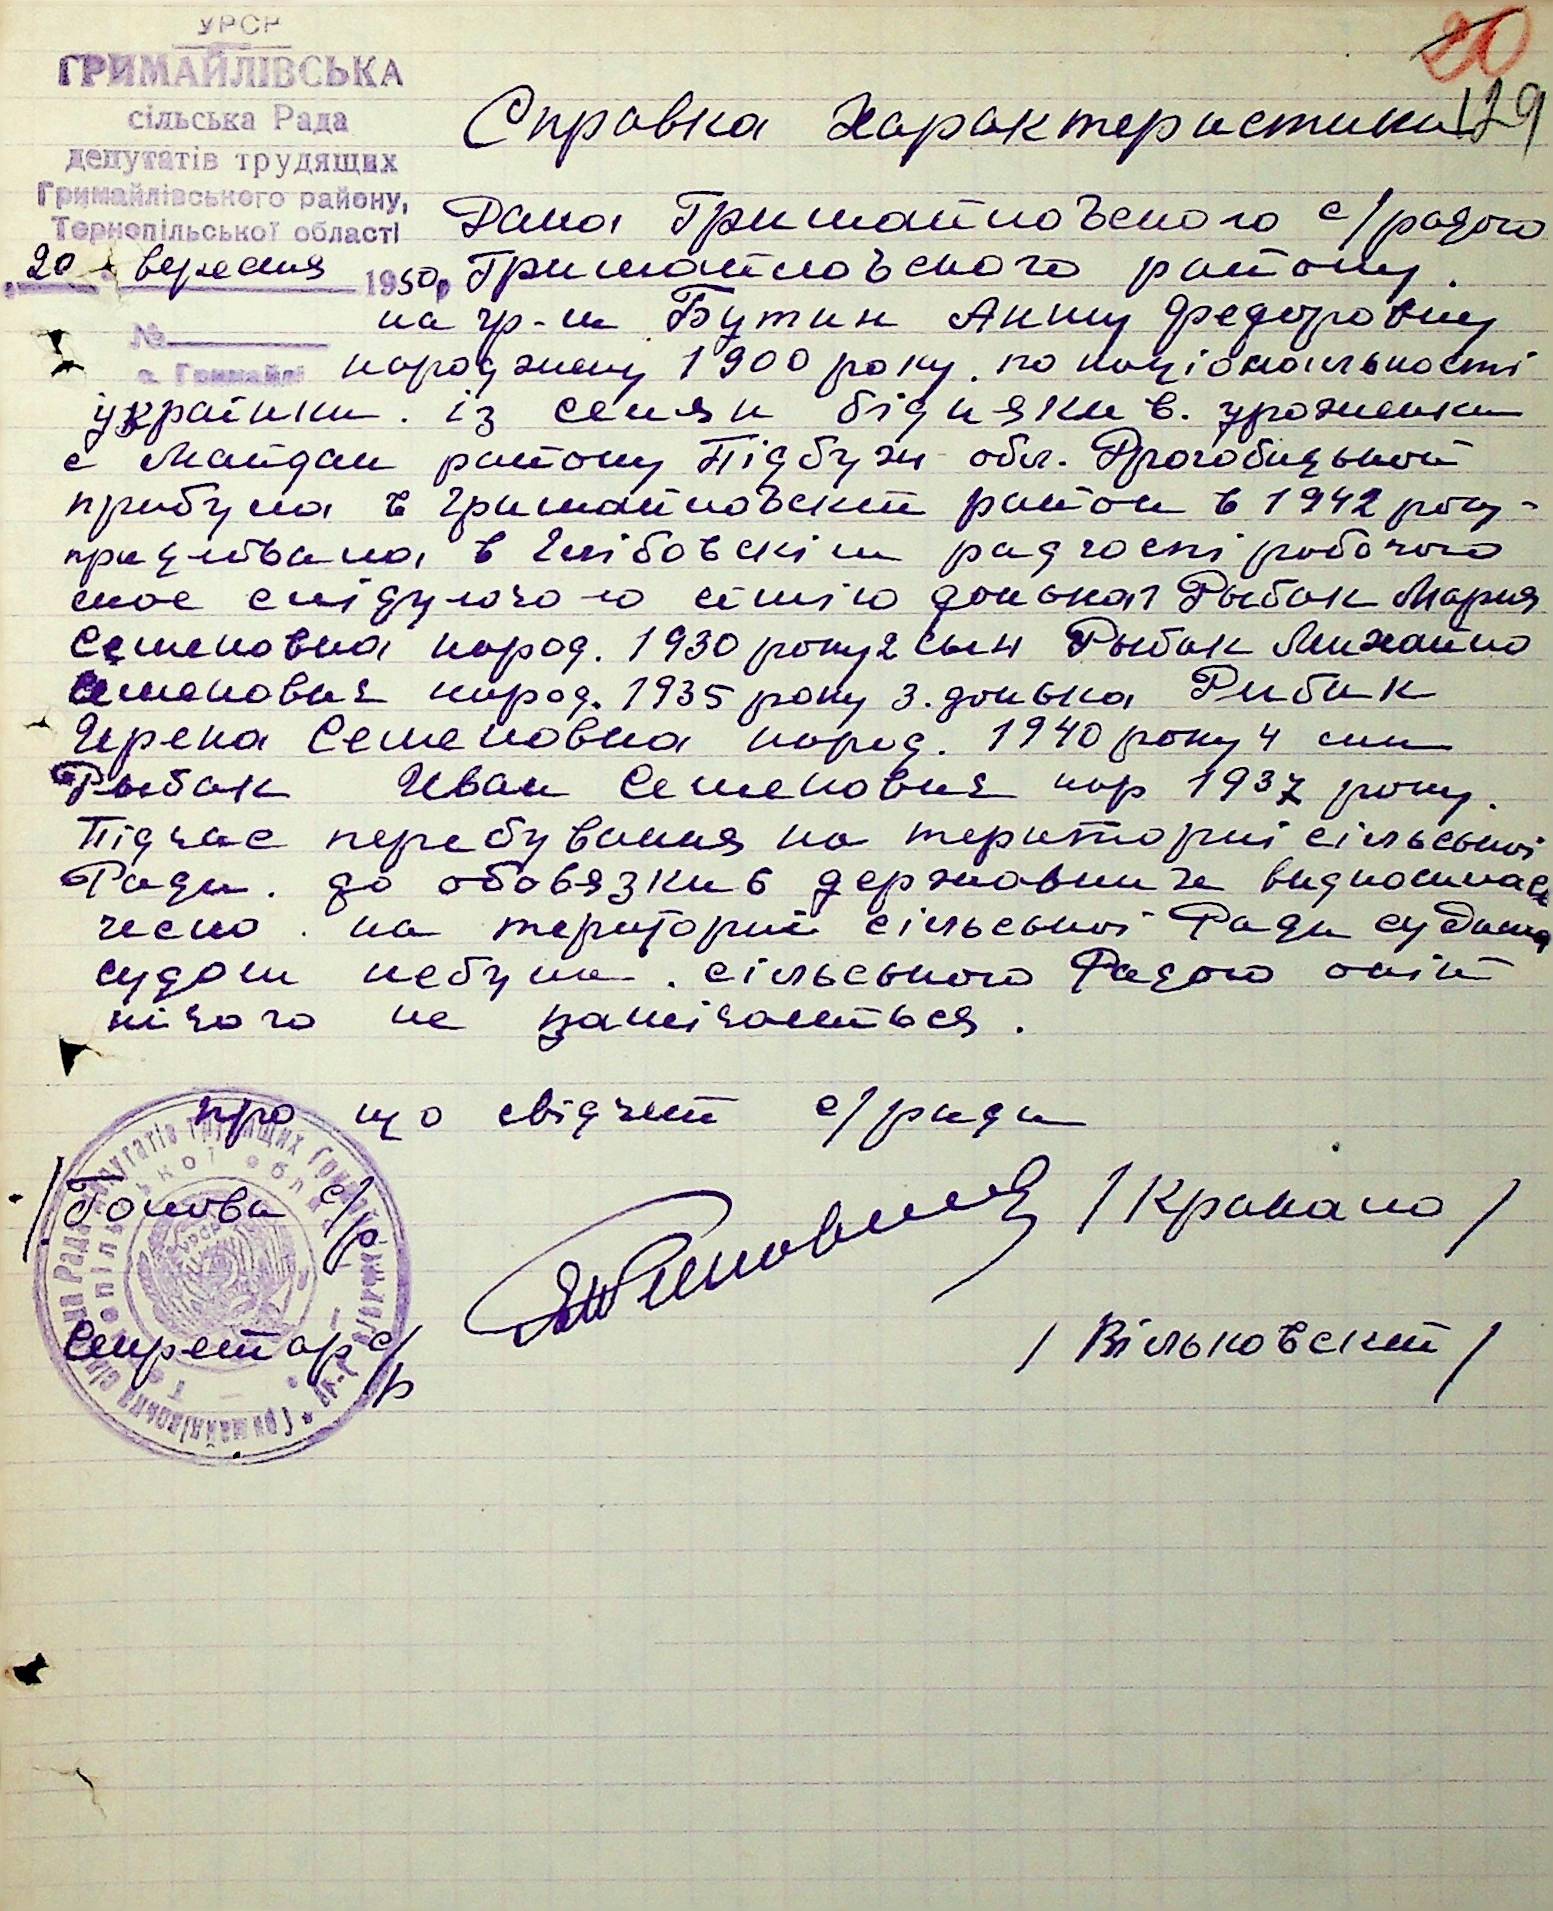 УРСР
ГРИМАЙЛІВСЬКА
сільська Рада
депутатів трудящих
Гримайлівського району,
Тернопільської області
20 вересня 1950р
№
с. Гримайлі
20
129
Справка Характеристика
Дана Гримайловского с/радою
Гримайловского району.
на гр-ш Бутин Анну Федоровну
народжену 1900 року. по національності
українки. із семян бідняків. уроженки
с Майдан району Підбуж обл. Дрогобицької
прибула в Гримайловский район в 1942 року-
працювала в Глібовскім радгоспі робочого
має слідуючого сімію донькаг Рыбак Мария
Семеновна народ. 1930 року 2 сын Рыбак Михайло
Семенович народ. 1935 року 3. донька Рибак
Ирена Семеновна народ. 1940 року 4 син
Рыбак Иван Семенович нар 1937 року.
Підчас перебування на териториі сільської
Ради. до обовязків державних видносилась
чесно. на територий сільської Ради судима
судом небула. сільського Радого опіт
нічого не замічаеться.
про що свідчит с/рада
/Голова с/р / Крикало /
Секретар с/р / Вільковский /